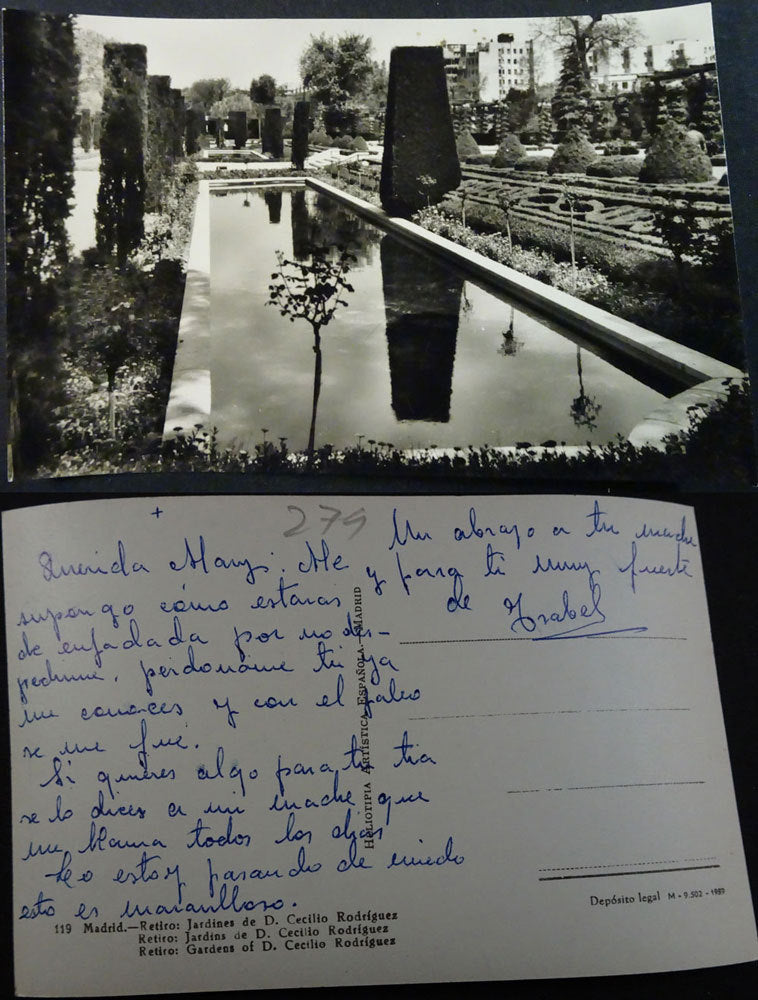 +
279
Querida Mary: Me
supongo cómo estaras
de enfadada por no des-
pedirme, perdoname tu ya
me conoces y con el jaleo
se me fué.
Si quieres algo para tu tia
se lo dices a mi madre que
me llama todos los dias
Lo estoy pasando de miedo
esto es maravilloso.
Un abrazo a tu madre
y para ti muy fuerte
de Isabel
HELIOTIPIA ARTÍSTICA ESPAÑOLA - MADRID
Depósito legal M - 9.502 - 1959
119 Madrid.—Retiro: Jardines de D. Cecilio Rodríguez
Retiro: Jardins de D. Cecilio Rodríguez
Retiro: Gardens of D. Cecilio Rodríguez